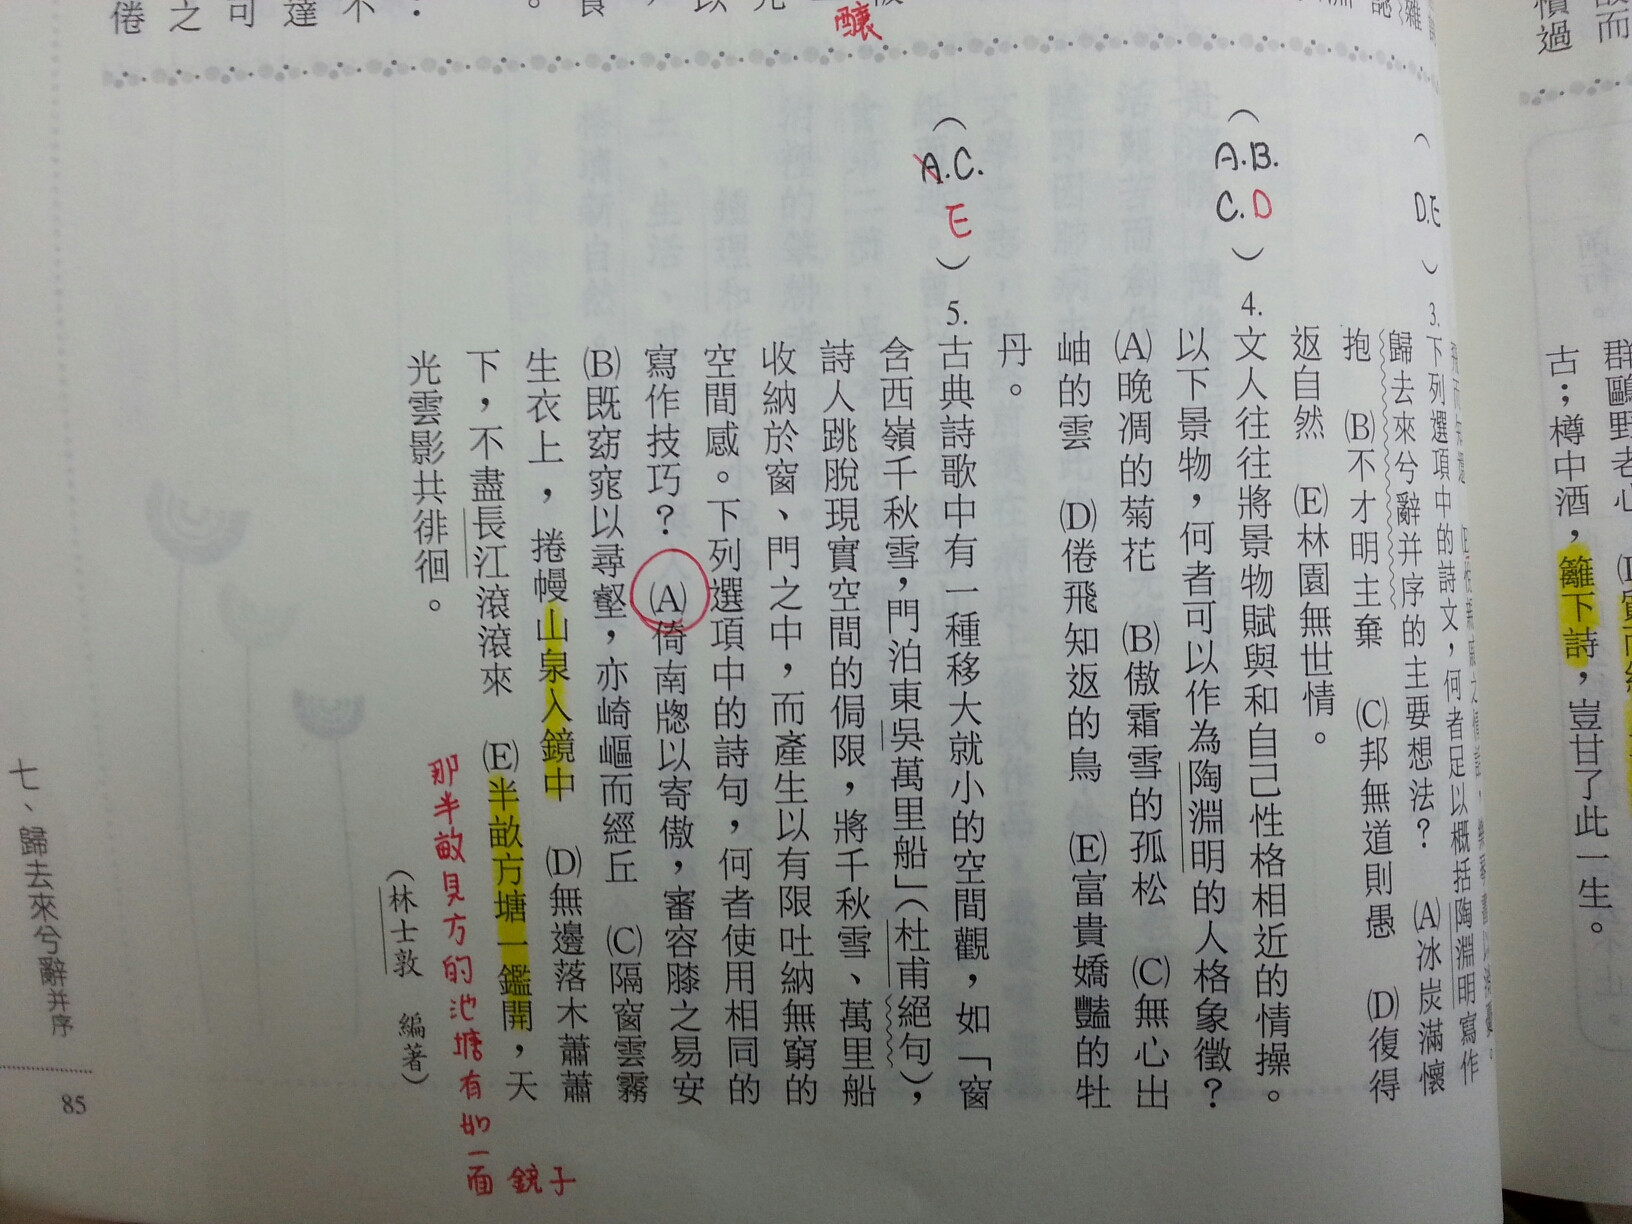 群鷗野老心
古；樽中酒，籬下詩，豈甘了此一生。
醸
（D.E）3.下列選項中的詩文，何者足以概括陶淵明寫作
歸去來兮辭并序的主要想法？　(A)冰炭滿懷
抱　(B)不才明主棄　(C)邦無道則愚　(D)復得
返自然　(E)林園無世情。
（A.B.C.D）4.文人往往將景物賦與和自己性格相近的情操。
以下景物，何者可以作為陶淵明的人格象徵？
(A)晚凋的菊花　(B)傲霜雪的孤松　(C)無心出
岫的雲　(D)倦飛知返的鳥　(E)富貴嬌豔的牡
丹。
（A.C.E）5.古典詩歌中有一種移大就小的空間觀，如「窗
含西嶺千秋雪，門泊東吳萬里船」（杜甫絕句），
詩人跳脫現實空間的侷限，將千秋雪、萬里船
收納於窗、門之中，而產生以有限吐納無窮的
空間感。下列選項中的詩句，何者使用相同的
寫作技巧？　(A)倚南牕以寄傲，審容膝之易安
(B)既窈窕以尋壑，亦崎嶇而經丘　(C)隔窗雲霧
生衣上，捲幔山泉入鏡中　(D)無邊落木蕭蕭
下，不盡長江滾滾來　(E)半畝方塘一鑑開，天
光雲影共徘徊。
那半畝見方的池塘有如一面鏡子
（林士敦　編著）
七、歸去來兮辭并序
85